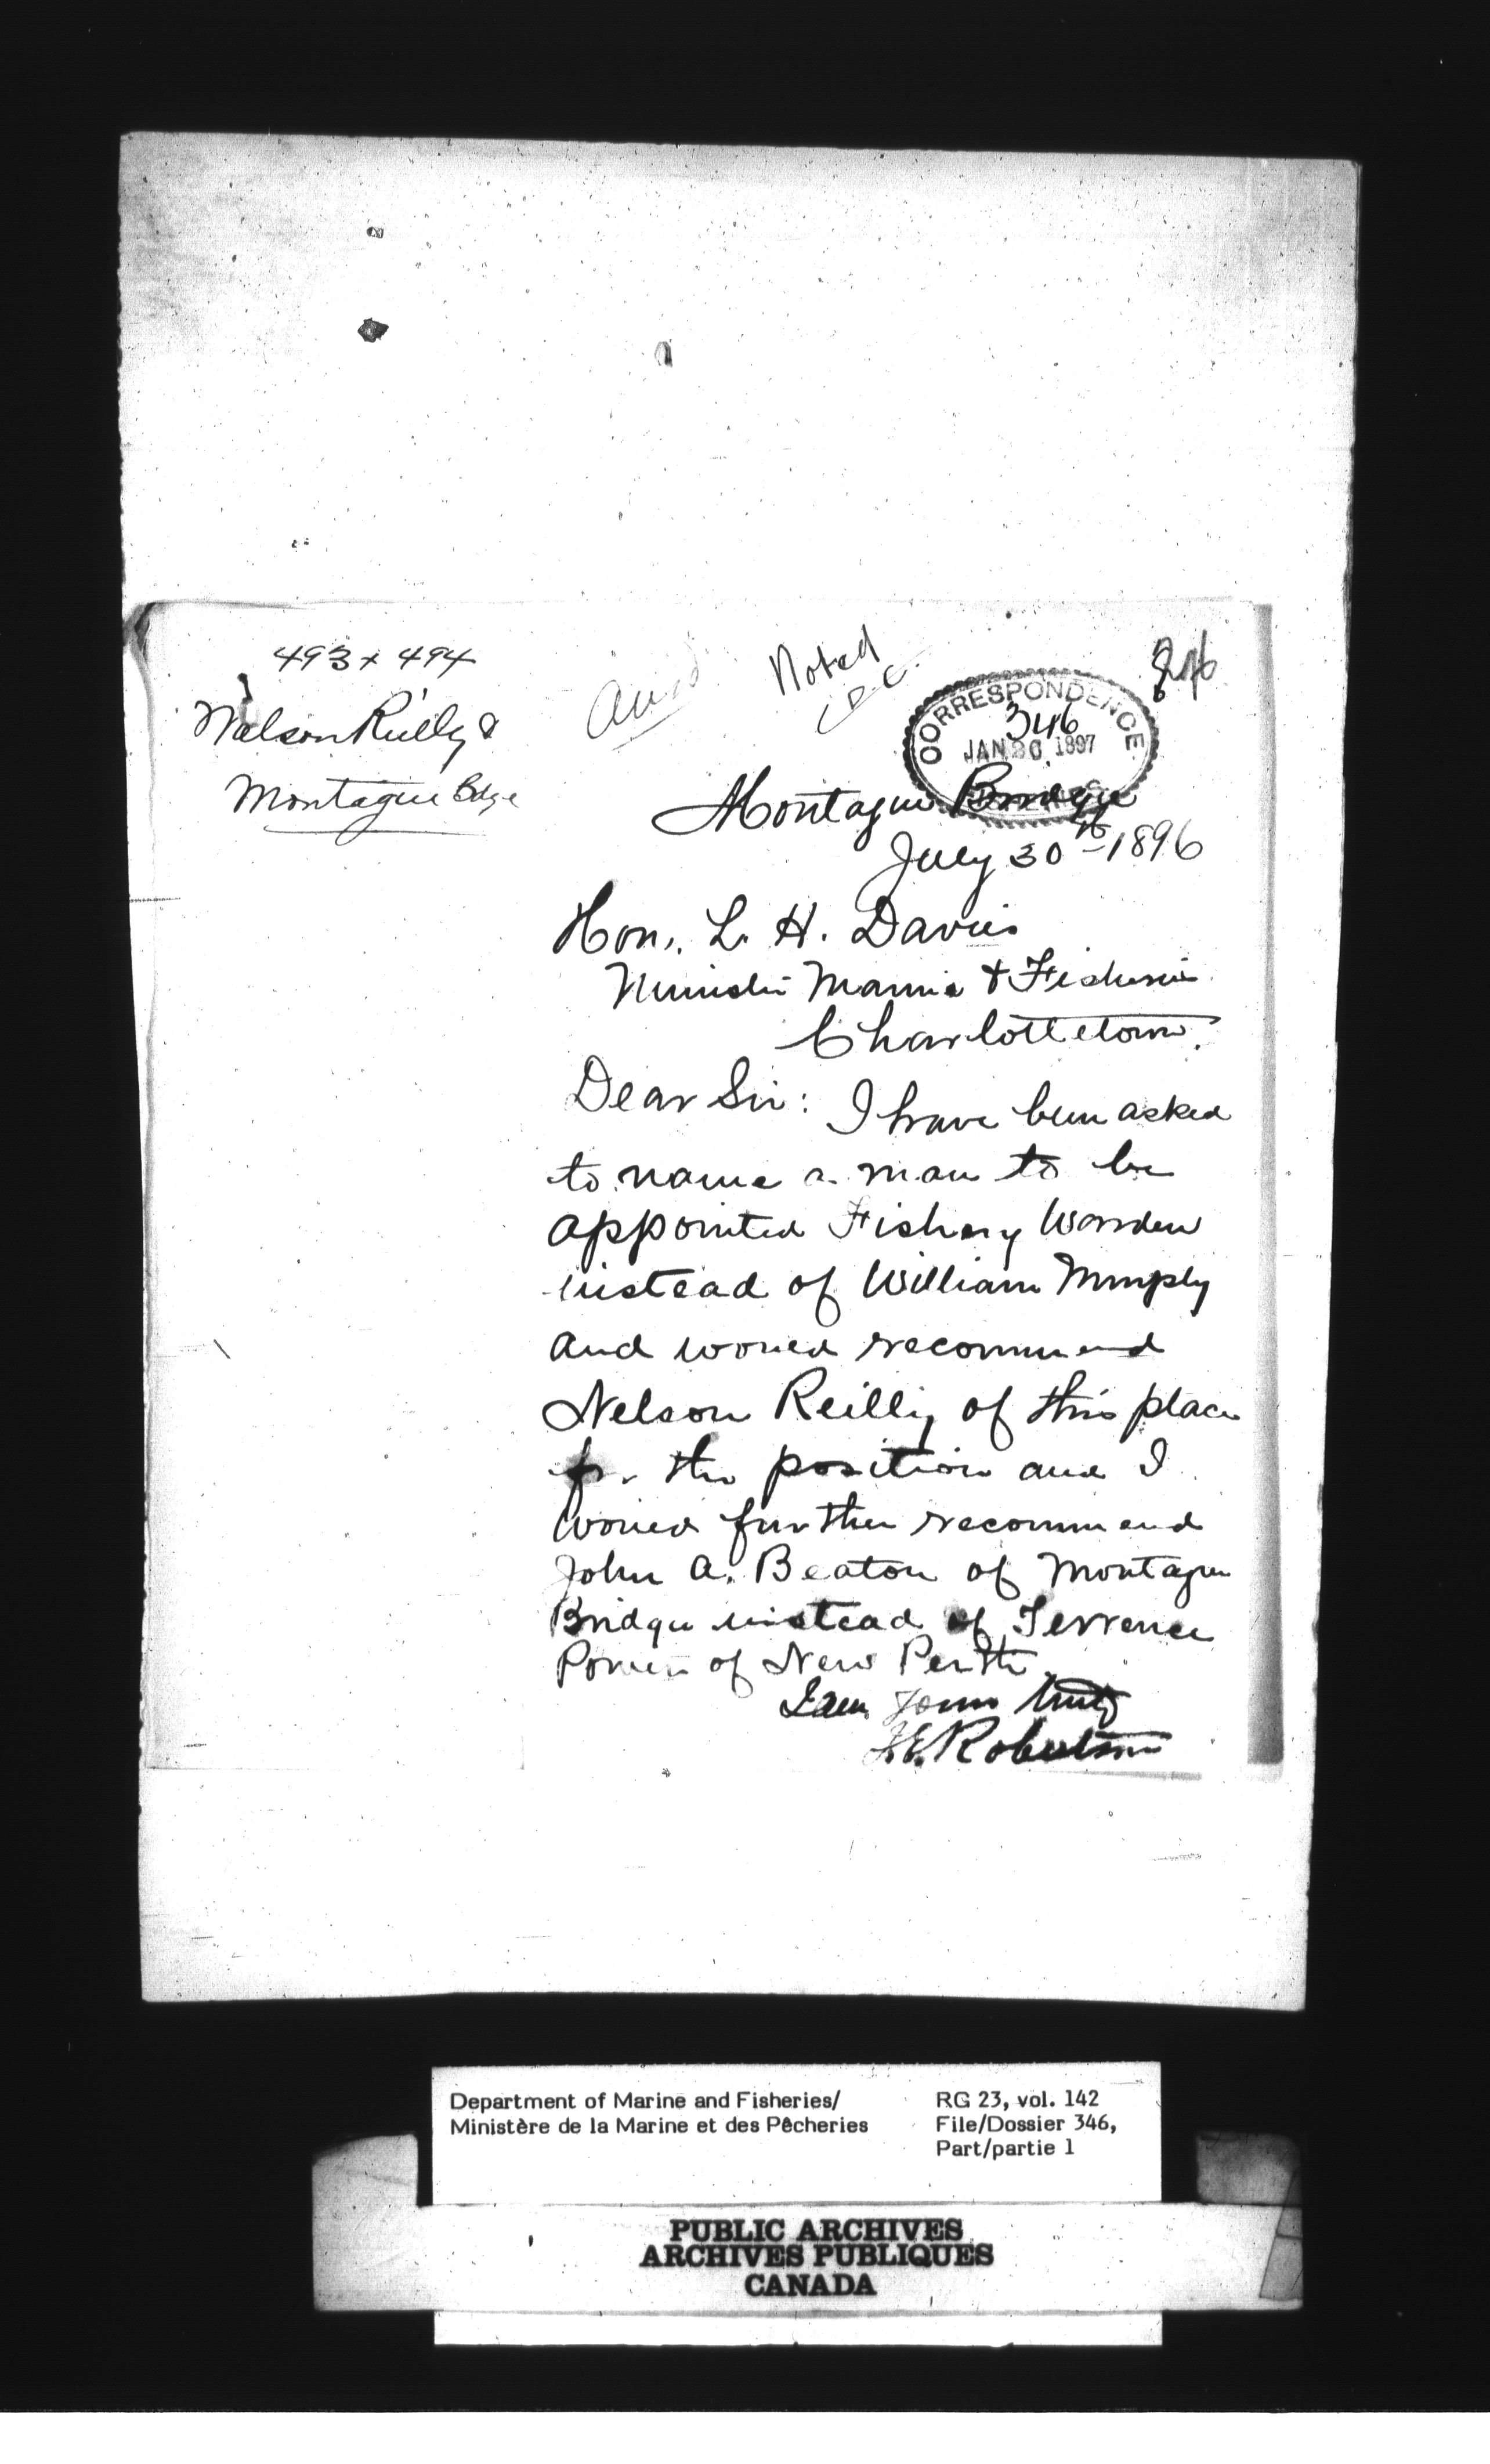 493 + 494
Nelson Reilly &
Montague Bdge
Ansd
Noted
CORRESPONDENCE
346
JAN 30 1897
Montague Bridge
July 30th 1896
Hon. L. H. Davies
Minister Marine & Fisheries
Charlottetown.
Dear Sir: I have been asked
to name a man to be
appointed Fishery Warden
instead of William
and would recommend
Nelson Reilly of this place
for the position and I
would further recommend
John A. Beaton of Montague
Bridge instead of Terrence
Power of New Perth
I am Yours truly
Robertson
Department of Marine and Fisheries/
Ministère de la Marine et des Pêcheries
RG 23, vol. 142
File/Dossier 346,
Part/partie 1
PUBLIC ARCHIVES
ARCHIVES PUBLIQUES
CANADA